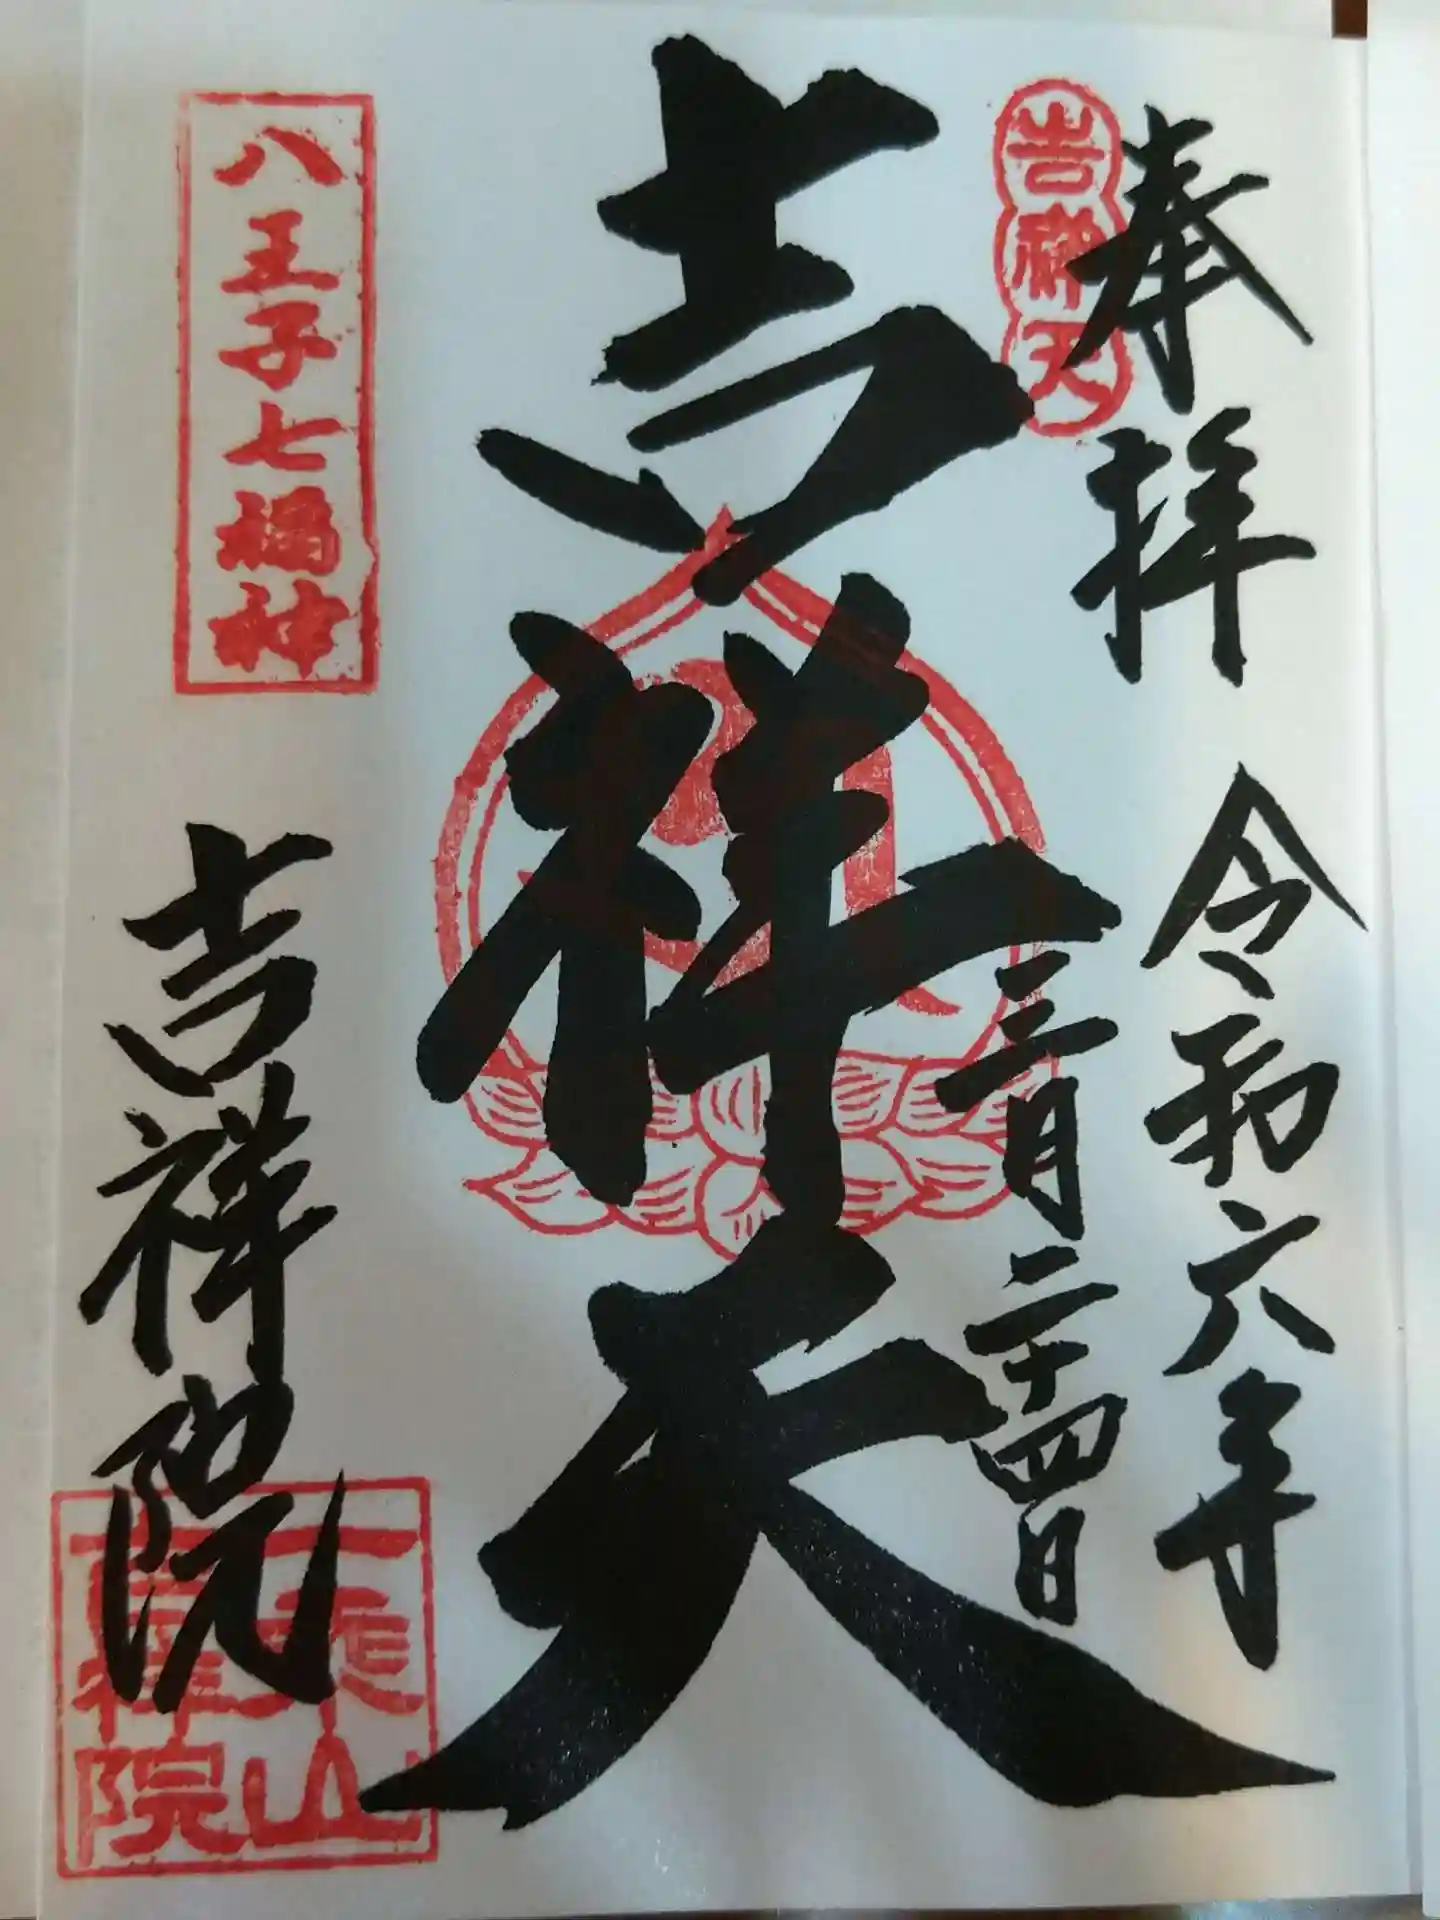 奉拝
令和六年
三月二十四日
吉祥天
吉祥天
八王子七福神
吉祥院
一乗山
吉祥院